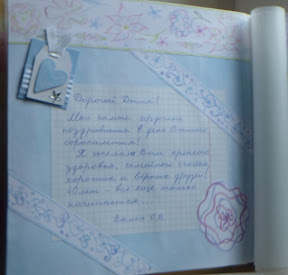 Дорогой Дима!
Мы самые сердечно
поздравляем в день Вашего
сорокалетия!
Я желаю Вам крепкого
здоровья, семейного счастья,
хороших и верных друзей!
40 лет - всё ещё только
начинается...